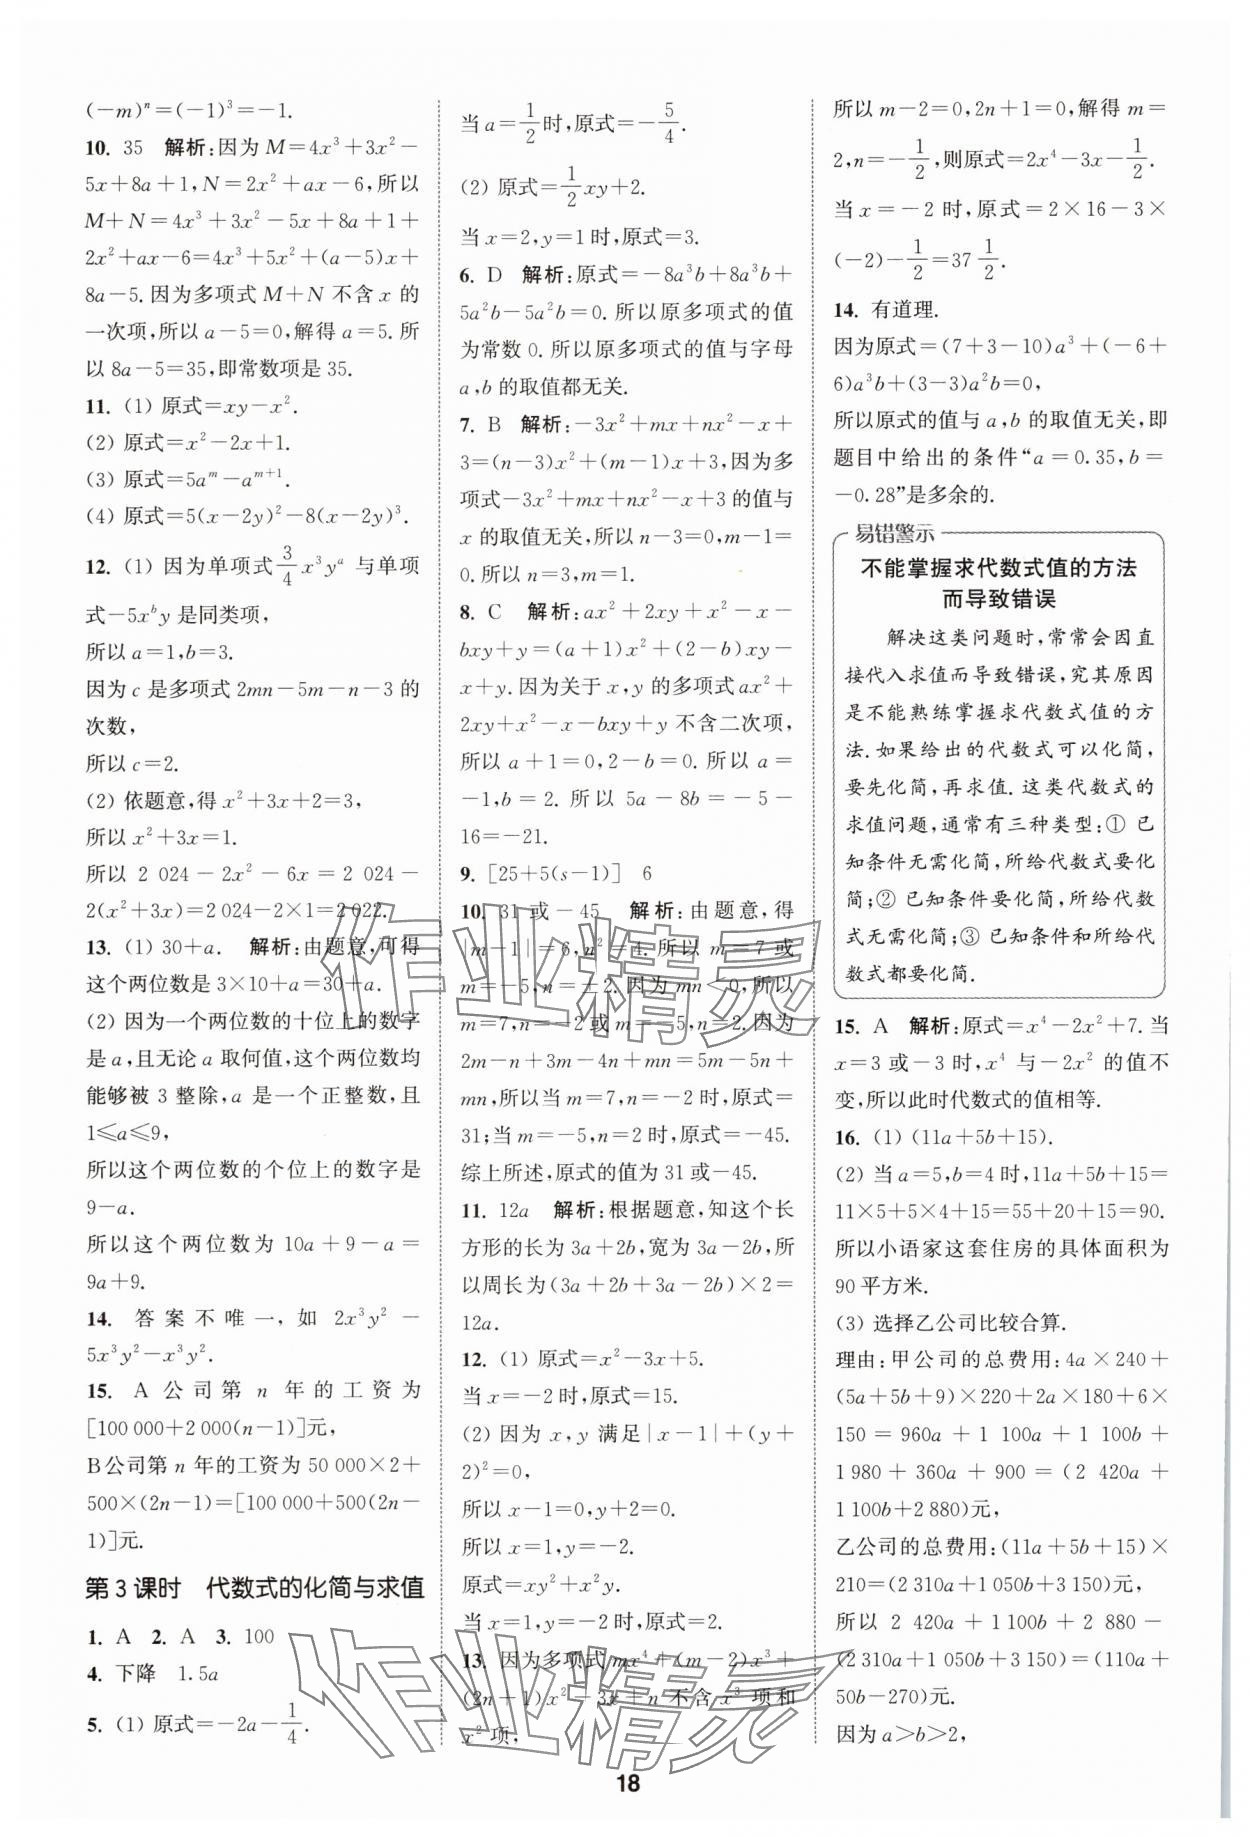 (-m)ⁿ=(-1)³=-1.
10. 35 解析:因为 M=4x³+3x²-
5x+8a+1,N=2x²+ax-6,所以
M+N=4x³+3x²-5x+8a+1+
2x²+ax-6=4x³+5x²+(a-5)x+
8a-5.因为多项式 M+N 不含 x 的
一次项,所以 a-5=0,解得 a=5.所
以 8a-5=35,即常数项是 35.
11. (1) 原式=xy-x².
(2) 原式=x²-2x+1.
(3) 原式=5aᵐ-aᵐ⁺¹.
(4) 原式=5(x-2y)²-8(x-2y)³.
12. (1) 因为单项式 3/4 x³yᵃ 与单项
式-5xᵇy 是同类项,
所以 a=1,b=3.
因为 c 是多项式 2mn-5m-n-3 的
次数,
所以 c=2.
(2) 依题意,得 x²+3x+2=3,
所以 x²+3x=1.
所以 2 024-2x²-6x=2 024-
2(x²+3x)=2 024-2×1=2 022.
13. (1) 30+a. 解析:由题意,可得
这个两位数是 3×10+a=30+a.
(2) 因为一个两位数的十位上的数字
是 a,且无论 a 取何值,这个两位数均
能够被 3 整除,a 是一个正整数,且
1≤a≤9,
所以这个两位数的个位上的数字是
9-a.
所以这个两位数为 10a+9-a=
9a+9.
14. 答案不唯一,如 2x³y²-
5x³y²-x³y².
15. A 公司第 n 年的工资为
[100 000+2 000(n-1)]元,
B公司第 n 年的工资为 50 000×2+
500×(2n-1)=[100 000+500(2n-
1)]元.
第 3 课时 代数式的化简与求值
1. A 2. A 3. 100
4. 下降 1.5a
5. (1) 原式=-2a-1/4.
当 a=1/2时,原式=-5/4.
(2) 原式=1/2xy+2.
当 x=2,y=1 时,原式=3.
6. D 解析:原式=-8a³b+8a³b+
5a²b-5a²b=0.所以原多项式的值
为常数 0.所以原多项式的值与字母
a,b 的取值都无关.
7. B 解析:-3x²+mx+nx²-x+
3=(n-3)x²+(m-1)x+3,因为多
项式-3x²+mx+nx²-x+3 的值与
x 的取值无关,所以 n-3=0,m-1=
0.所以 n=3,m=1.
8. C 解析:ax²+2xy+x²-x-
bxy+y=(a+1)x²+(2-b)xy-
x+y.因为关于 x,y 的多项式 ax²+
2xy+x²-x-bxy+y 不含二次项,
所以 a+1=0,2-b=0. 所以 a=
-1,b=2. 所以 5a-8b=-5-
16=-21.
9. [25+5(s-1)] 6
10. 31 或-45 解析:由题意,得
|m-1|=6,n²=4.所以 m=7 或
m=-5,n=±2.因为 mn<0,所以
m=7,n=-2 或 m=-5,n=2.因为
2m-n+3m-4n+mn=5m-5n+
mn,所以当 m=7,n=-2 时,原式=
31;当 m=-5,n=2 时,原式=-45.
综上所述,原式的值为 31 或-45.
11. 12a 解析:根据题意,知这个长
方形的长为 3a+2b,宽为 3a-2b,所
以周长为(3a+2b+3a-2b)×2=
12a.
12. (1) 原式=x²-3x+5.
当 x=-2 时,原式=15.
(2) 因为 x,y 满足|x-1|+(y+
2)²=0,
所以 x-1=0,y+2=0.
所以 x=1,y=-2.
原式=xy²+x²y.
当 x=1,y=-2 时,原式=2.
13. 因为多项式 mx⁴+(m-2)x³+
(2n+1)x²-3x+n 不含 x³ 项和
x² 项,
所以 m-2=0,2n+1=0,解得 m=
2,n=-1/2,则原式=2x⁴-3x-1/2.
当 x=-2 时,原式=2×16-3×
(-2)-1/2=37 1/2.
14. 有道理.
因为原式=(7+3-10)a³+(-6+
6)a³b+(3-3)a²b=0,
所以原式的值与 a,b 的取值无关,即
题目中给出的条件“a=0.35,b=
-0.28”是多余的.
易错警示
不能掌握求代数式值的方法
而导致错误
解决这类问题时,常常会因直
接代入求值而导致错误,究其原因
是不能熟练掌握求代数式值的方
法.如果给出的代数式可以化简,
要先化简,再求值.这类代数式的
求值问题,通常有三种类型:① 已
知条件无需化简,所给代数式要化
简;② 已知条件要化简,所给代数
式无需化简;③ 已知条件和所给代
数式都要化简.
15. A 解析:原式=x⁴-2x²+7.当
x=3 或-3 时,x⁴ 与-2x² 的值不
变,所以此时代数式的值相等.
16. (1) (11a+5b+15).
(2) 当 a=5,b=4 时,11a+5b+15=
11×5+5×4+15=55+20+15=90.
所以小语家这套住房的具体面积为
90 平方米.
(3) 选择乙公司比较合算.
理由:甲公司的总费用:4a×240+
(5a+5b+9)×220+2a×180+6×
150=960a+1 100a+1 100b+
1 980+360a+900=(2 420a+
1 100b+2 880)元,
乙公司的总费用:(11a+5b+15)×
210=(2 310a+1 050b+3 150)元,
所以 2 420a+1 100b+2 880-
(2 310a+1 050b+3 150)=(110a+
50b-270)元.
因为 a>b>2,
18
作业精灵
作业精灵